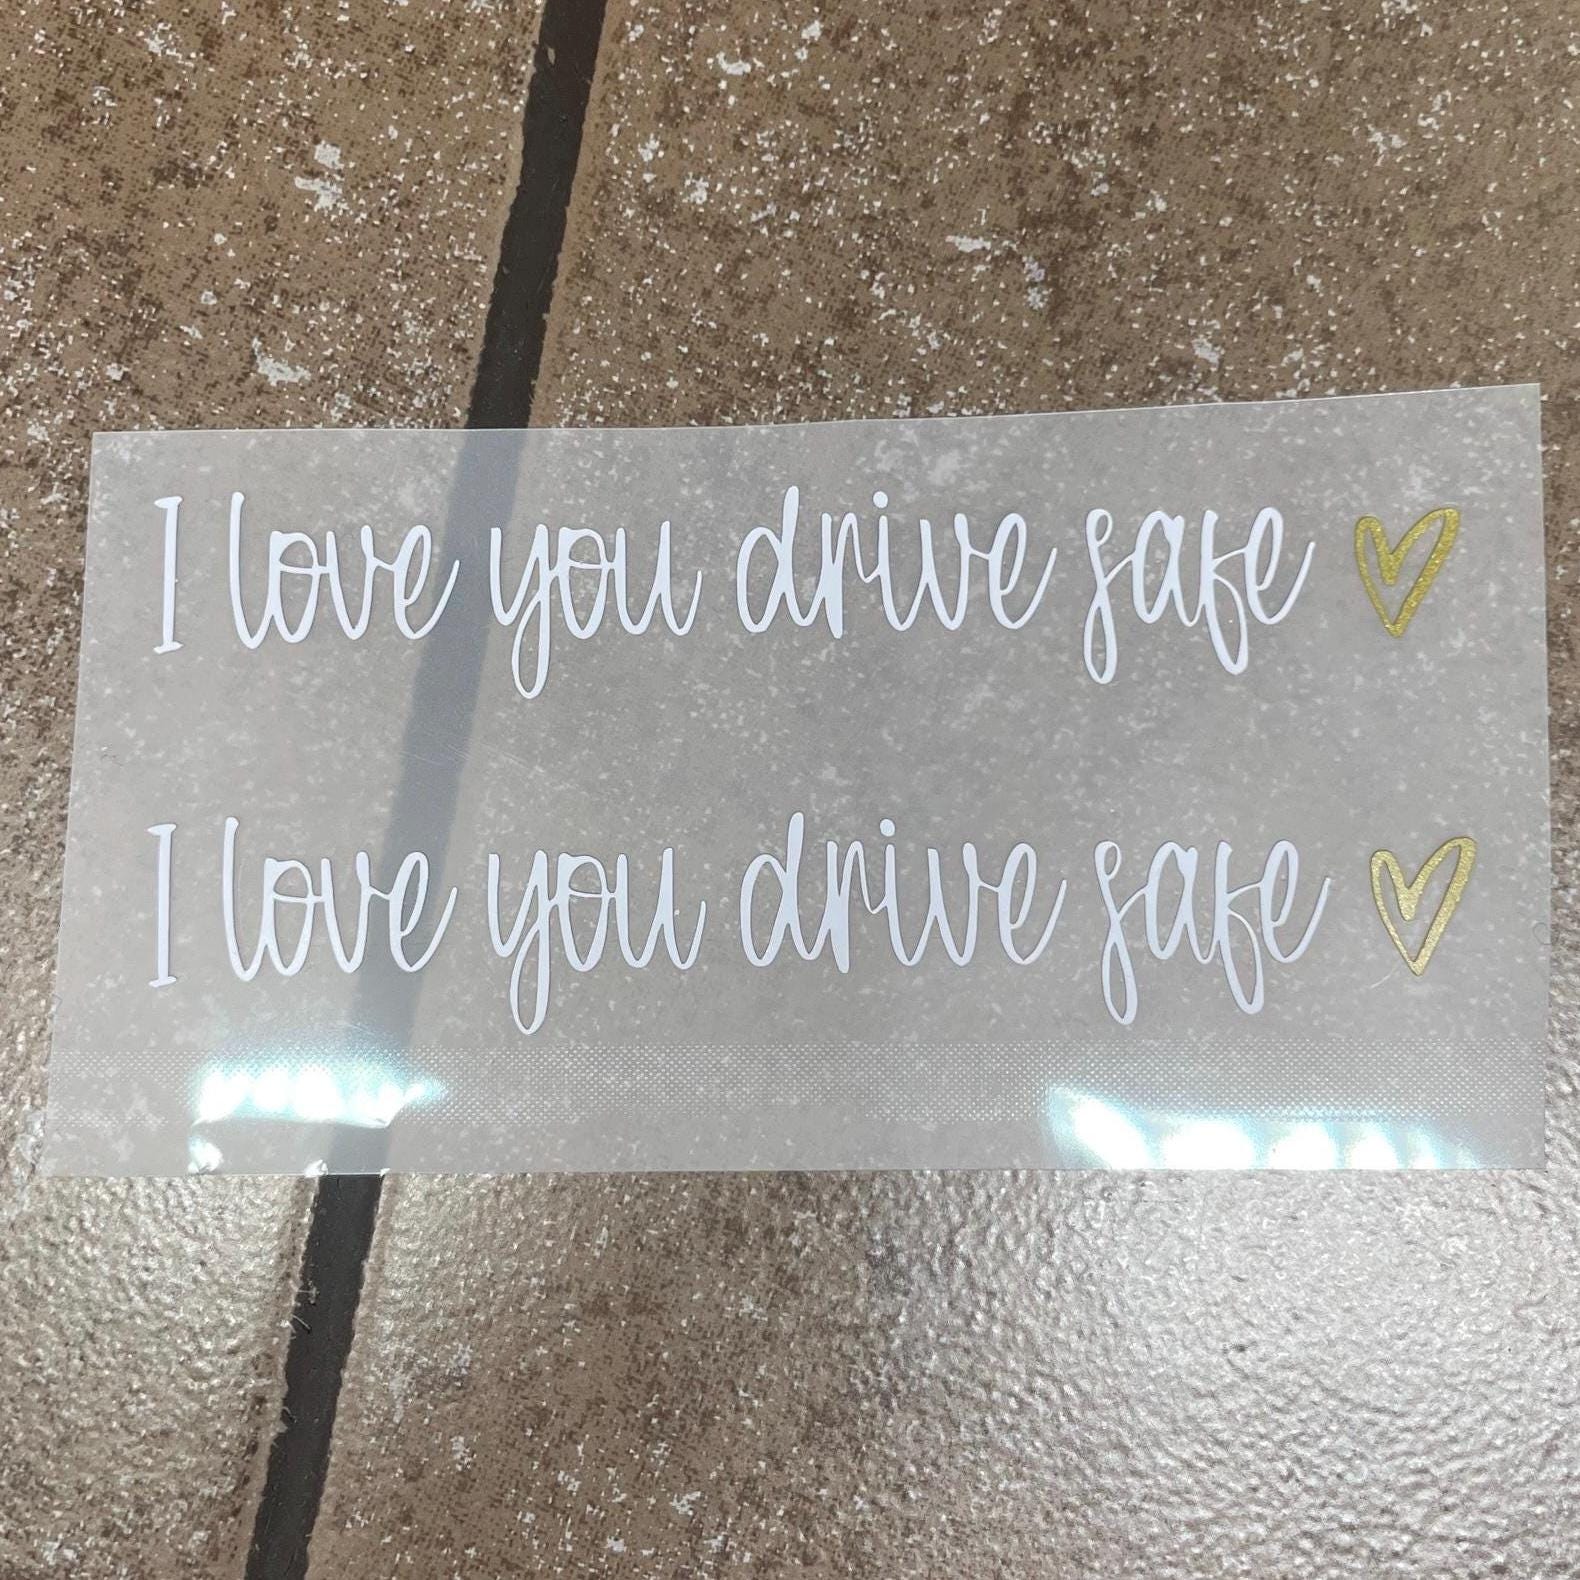 I love you drive safe
I love you drive safe